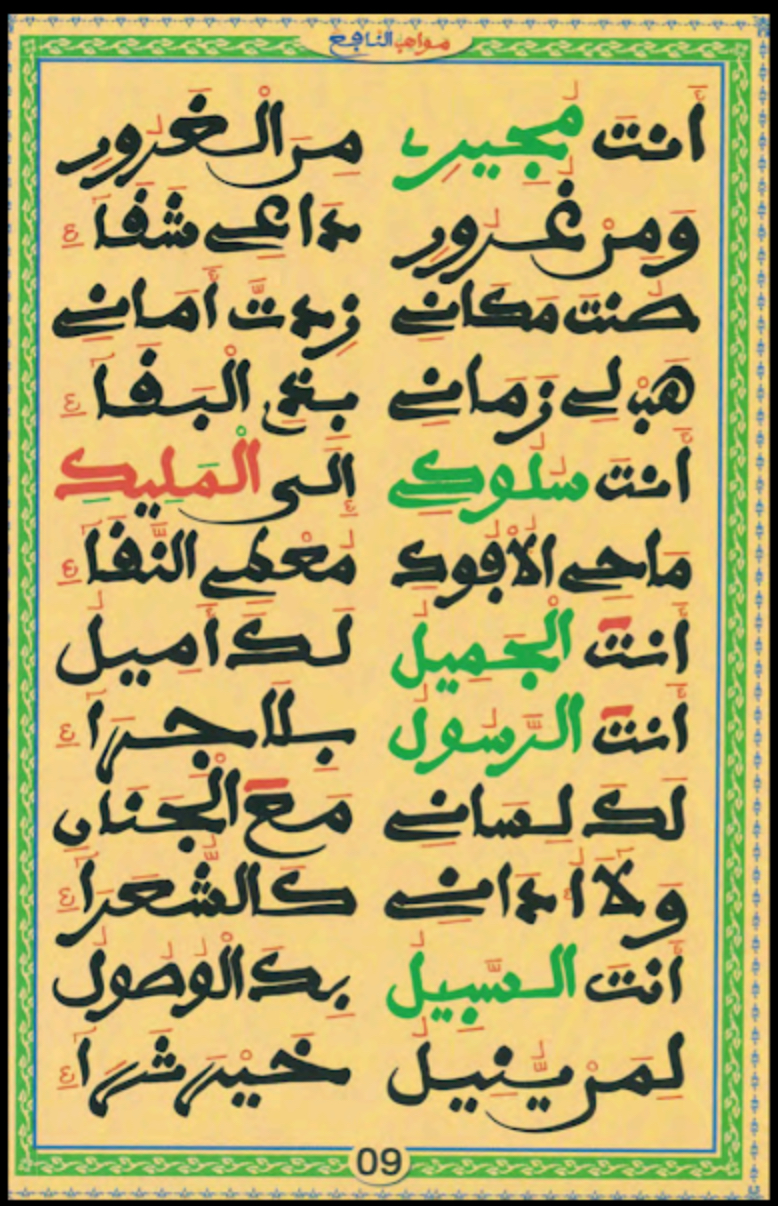 مواهب النافع
أنت مجير من الغرور
ومن غرور داعي شفاء
صنت مكاني زدت أماني
هب لي زماني بذي البقاء
أنت سلوكي إلى المليك
ماحي الأفوك معطي النقاء
أنت الجميل لك أميل
أنت الرسول بلا جراء
لك لساني مع الجنان
ولا أداني كالشعراء
أنت السبيل بك الوصول
لمن ينيل خير شراء
09